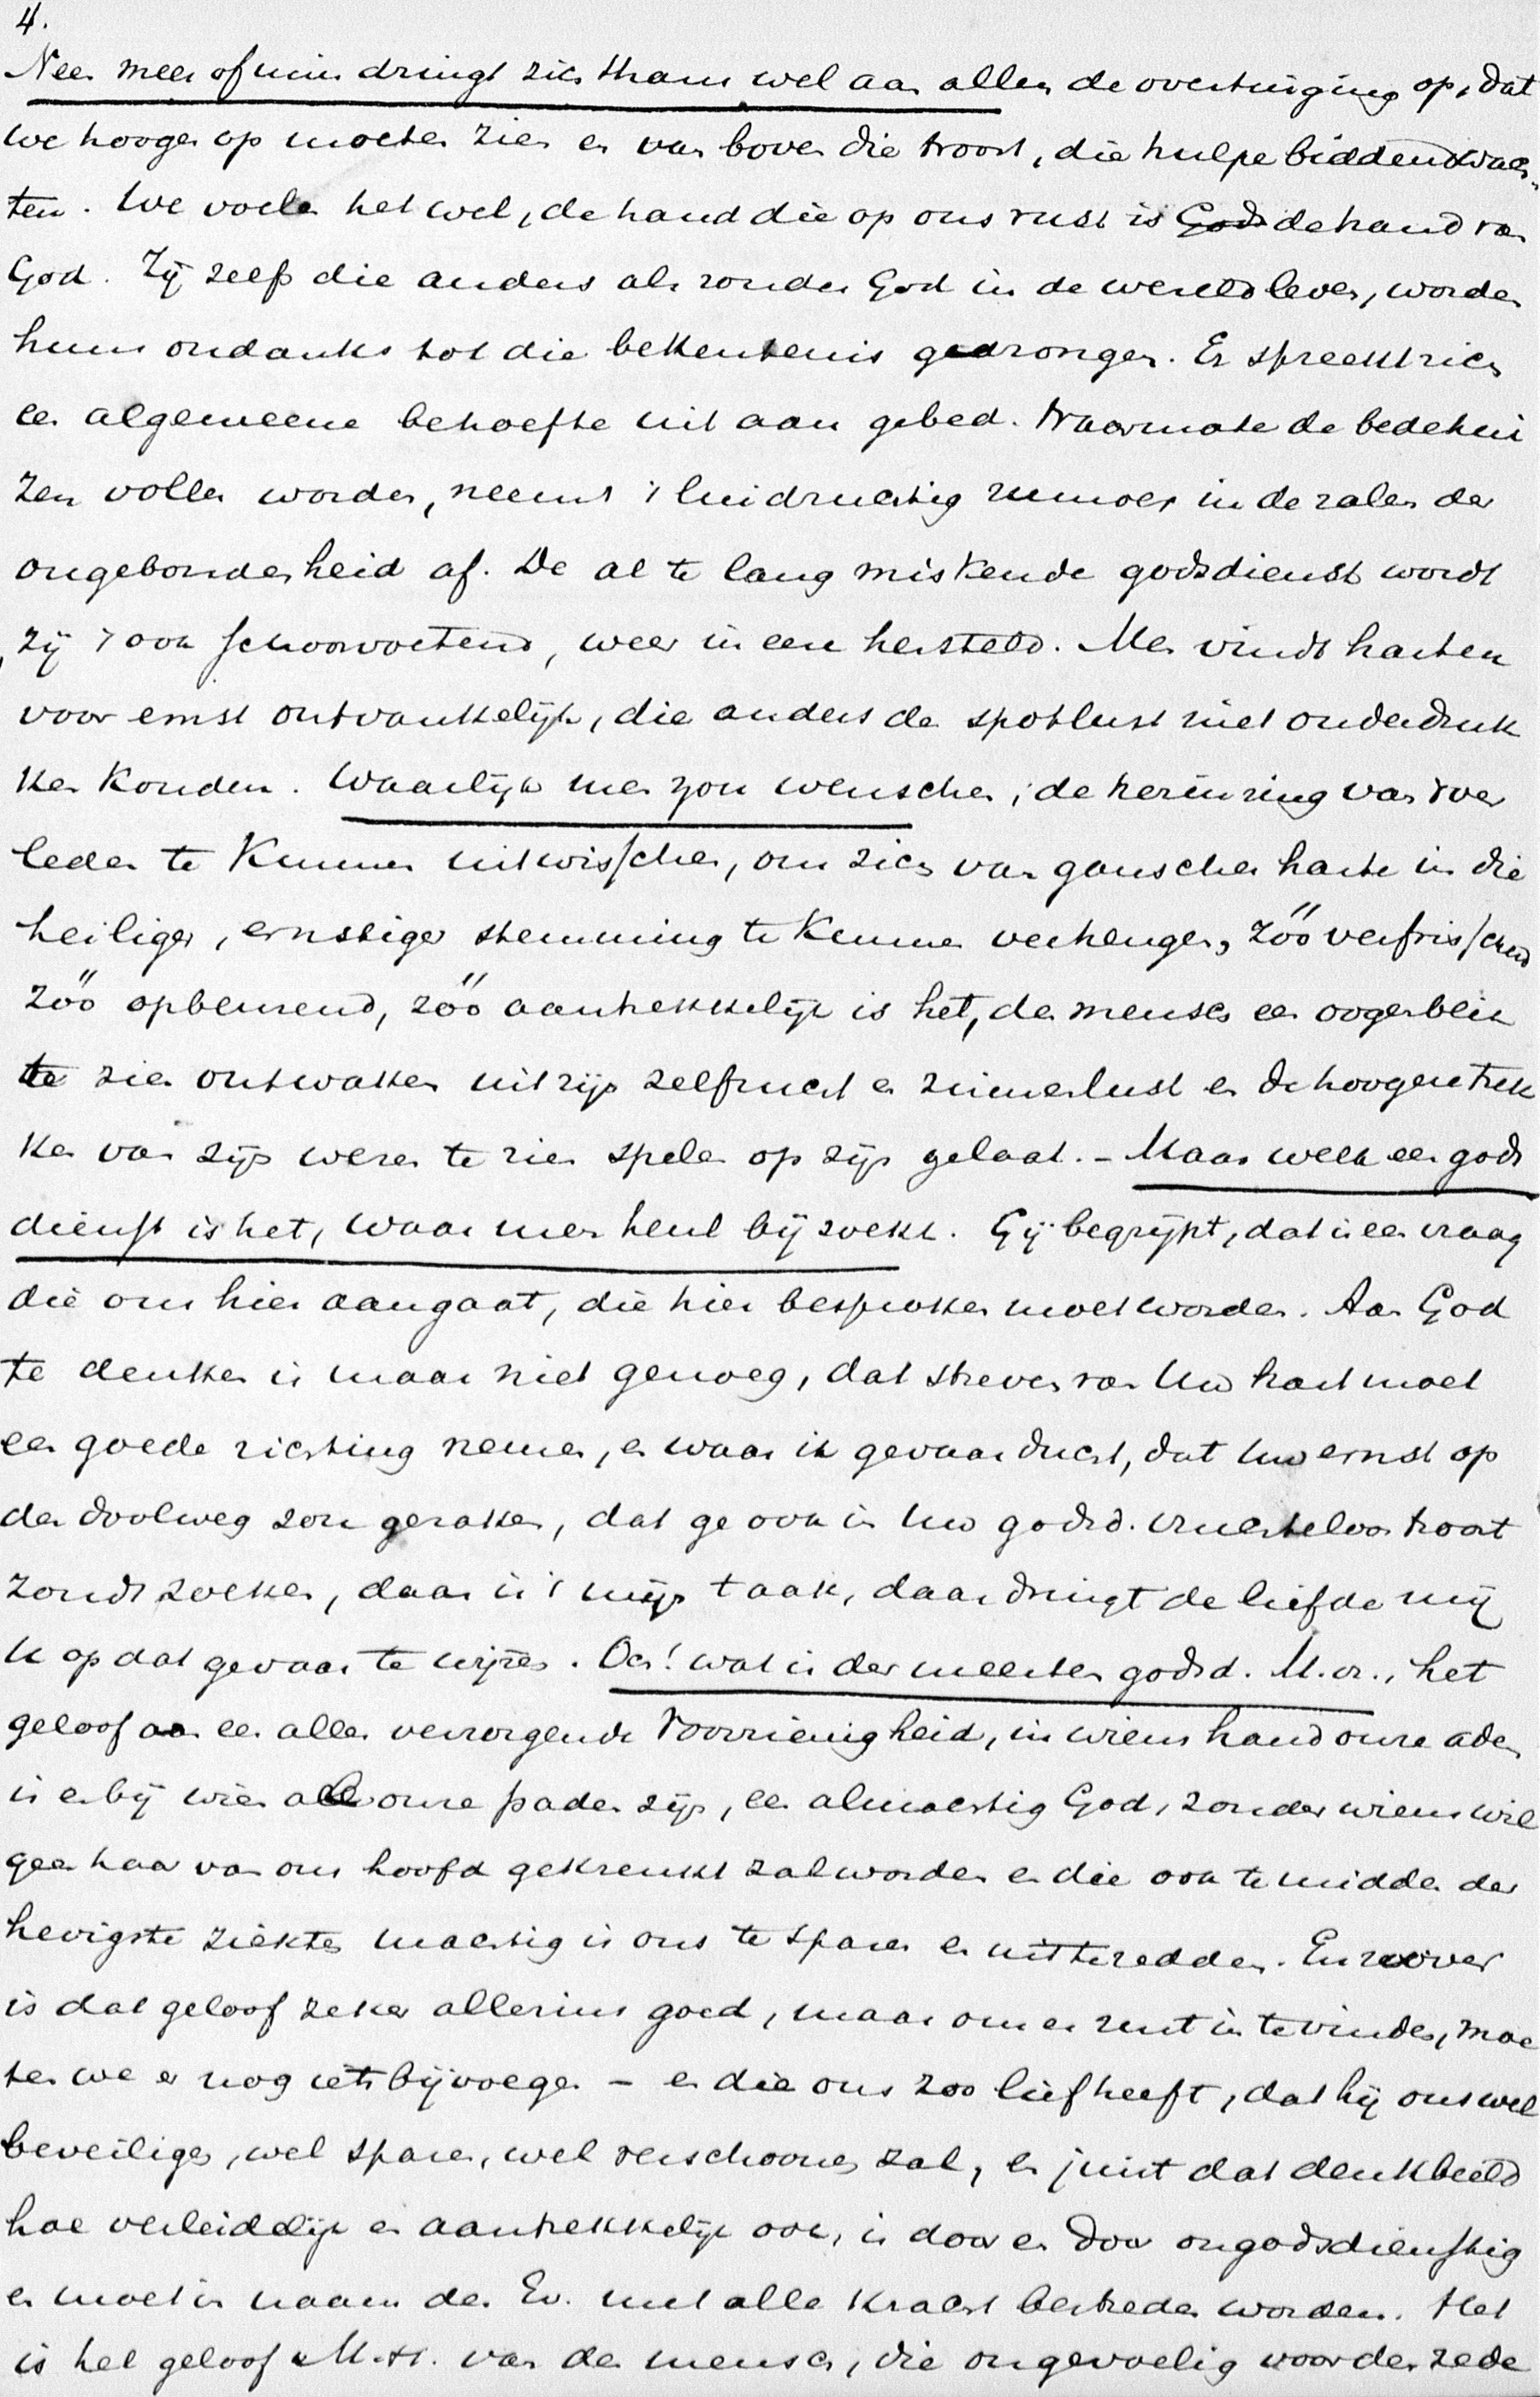 4.
Neen meer of min dringt zich thans wel aan allen de overtuiging op, dat
we hooger op moeten zien en van boven die troost, die hulpe biddend wach-
ten. We voelen het wel, de hand die op ons rust is Gods de hand van
God. Zij zelfs die anders als zonder God in de wereld leven, worden
huns ondanks tot die bekentenis gedrongen. Er spreekt zich
een algemeene behoefte uit aan gebed. Naarmate de bedehui
zen voller worden, neemt 't luidruchtig rumoer in de zalen der
ongebondenheid af. De al te lang miskende godsdienst wordt
, zij 't ook schoorvoetend, weer in eere hersteld. Men vindt harten
voor ernst ontvankelijk, die anders de spotlust niet onderdruk
ken konden. Waarlijk men zou wenschen, de herinring van 't ver
leden te kunnen uitwisschen, om zich van ganscher harte in die
heiligen, ernstigen stemming te kunnen verheugen, zóó verfrisschend
zóó opbeurend, zóó aantrekkelijk is het, den mensch een oogenblik
te zien ontwaken uit zijn zelfzucht en zinnenlust en de hoogere trek
ken van zijn wezen te zien spelen op zijn gelaat. - Maar welk een gods
dienst is het, waar men heul bij zoekt. Gij begrijpt, dat is een vraag
die ons hier aangaat, die hier besproken moet worden. Aan God
te denken is maar niet genoeg, dat streven van Uw hart moet
een goede richting nemen, en waar ik gevaar ducht, dat Uw ernst op
den doolweg zou geraken, dat ge ook in Uw godsd. vruchteloos troost
zoudt zoeken, daar is 't mijn taak, daar dringt de liefde mij
U op dat gevaar te wijzen. Och! wat is der meesten godsd. M.v., het
geloof aan een alles verzorgende Voorzienigheid, in wiens hand onze adem
is en bij wien al onze paden zijn, een almachtig God, zonder wiens wil
geen haar van ons hoofd gekrenkt zal worden en die ook te midden der
hevigste ziekten machtig is ons te sparen en uit te redden. En zoover
is dat geloof zeker allerzins goed, maar om er rust in te vinden, moe
ten we er nog iets bijvoegen - en die ons zoo lief heeft, dat hij ons wel
beveiligen, wel sparen, wel verschoonen zal, en juist dat denkbeeld
hoe verleidelijk en aantrekkelijk ook, is door en door ongodsdienstig
en moet in naam des Ev. met alle kracht bestreden worden. Het
is het geloof M.H. van den mensch, die ongevoelig voor de zede